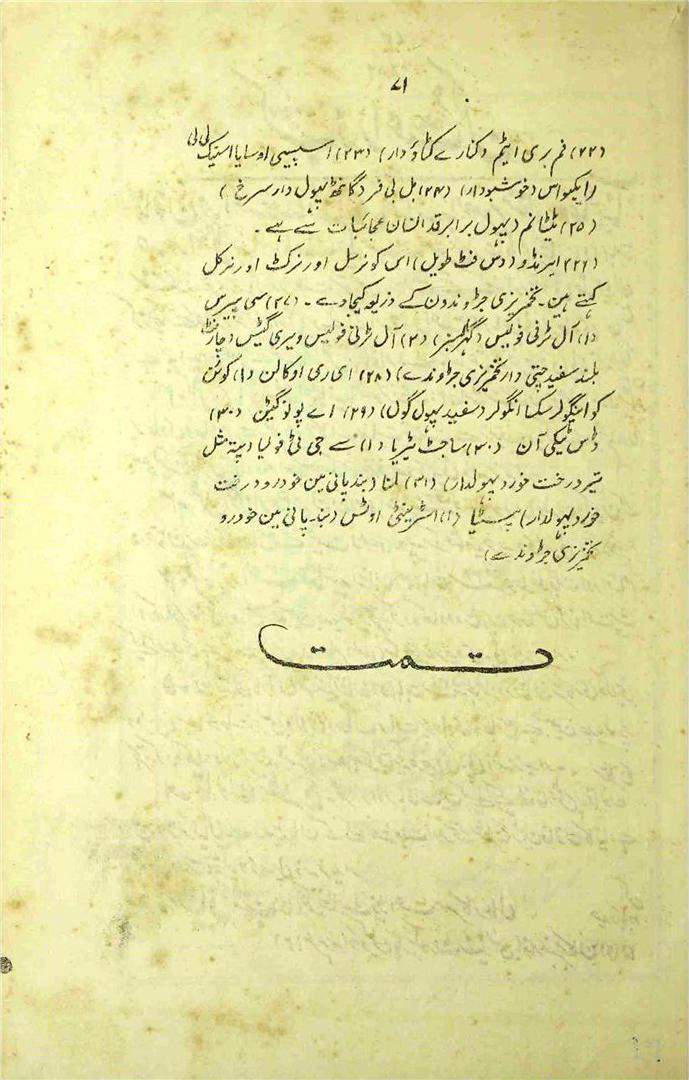 ۷۱
(۲۲) فم بری ایٹم (کنارے کٹاؤدار) (۲۳) اسپیسی اوسایا اسٹیک ٹی لی
رایکیواس (خوشبودار) (۲۴) بل بی فر (گانٹھ پہول دار سرخ)
(۲۵) ٹیٹانم (پہول برابر قد انسان عجائبات سے ہے۔
(۲۲۶) ایرنڈو (دس فٹ طویل) اس کو نرسل اور نرکٹ اور نرکل
کہتے ہین۔ تخمریزی جڑاوندون کے ذریعہ کیجاوے۔ (۲۷) سی پیرس
(۱) آل ٹرنی فولیس (گہرا سبز) (۲) آل ٹرنی فولیس ویری گیٹس (چار فٹ
بلند سفید چتی دار تخمریزی جڑاوندے) (۲۸) ای ری اوکالن (۱) کوئن
کو اینگولر سکسا انگولر (سفید پہول گول) (۲۹) اے پونوگیٹن (۳۰)
ڈاس ٹیکی آن (۳۰) ساجٹ ٹیریا (۱) سے جی ٹی فولیا (پتہ مثل
تیر درخت خورد پہولدار) (۳۱) لمنا (بند پانی مین خودرو درخت
خورد پہولدار) پسٹیا (۱) اسٹریٹی اوٹس (بند پانی مین خودرو
تخمریزی جڑاوندے)
تمت